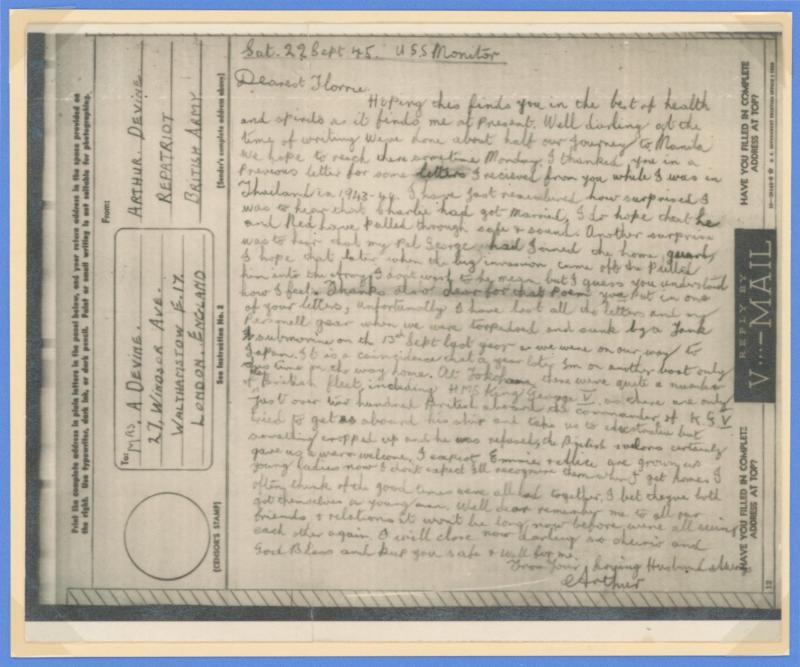 Print the complete address in plain letters in the panel below, and your return address in the space provided on
the right. Use typewriter, dark ink, or dark pencil. Faint or small writing is not suitable for photographing.
From:
To:
MRS A DEVINE.
27, WINDSOR AVE.
WALTHAMSTOW E.17.
LONDON. ENGLAND
ARTHUR. DEVINE.
REPATRIOT
BRITISH ARMY
(CENSOR'S STAMP)
See Instruction No. 2
(Sender's complete address above)
Sat. 22 Sept 45. USS Monitor
Dearest Florrie
Hoping this finds you in the best of health
and spirits as it finds me at present. Well darling at the
time of writing weve done about half our journey to Manila
We hope to reach there sometime Monday. I thanked you in a
previous letter for some letters I recieved from you while I was in
Thailand in 1943-44. I have just remembered how surprised I
was to hear that Charlie had got married, I do hope that he
and Ned have pulled through safe & sound. Another surprise
was to hear that my pal George had joined the home guard,
I hope that later when the big invasion came off the pulled
him into the army I dont wish to be mean but I guess you understand
how I feel. Thanks also dear for that poem you put in one
of your letters, unfortunatly I have lost all the letters and my
personell gear when we were torpedoed and sunk by a Yank
submarine on the 13th Sept last year as we were on our way to
Japan. It is a coincidence that a year later Im on another boat only
this time on the way home. At Yokohama there were quite a number
of British fleet, including HMS King George V. as there are only
just over two hundred British aboard the commander of K.G V
tried to get us aboard his ship and take us to Australia but
something cropped up and he was refused, the British sailors certainly
gave us a warm welcome, I expect Emmie & Alice are grown up
young ladies now I dont expect I'll recognise them when I get home. I
often think of the good times weve all had together, I bet theyve both
got themselves a young man. Well dear remember me to all our
friends & relations it wont be long now before were all seeing
each other again. I will close now darling so cheerio and
God Bless and keep you safe & well for me.
From Your Loving Husband Always
Arthur
HAVE YOU FILLED IN COMPLETE
ADDRESS AT TOP?
REPLY BY
V···—MAIL
HAVE YOU FILLED IN COMPLETE
ADDRESS AT TOP?